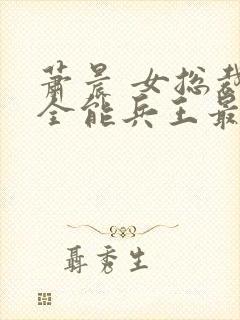 萧晨 女总裁
全能兵王最
聂秀生